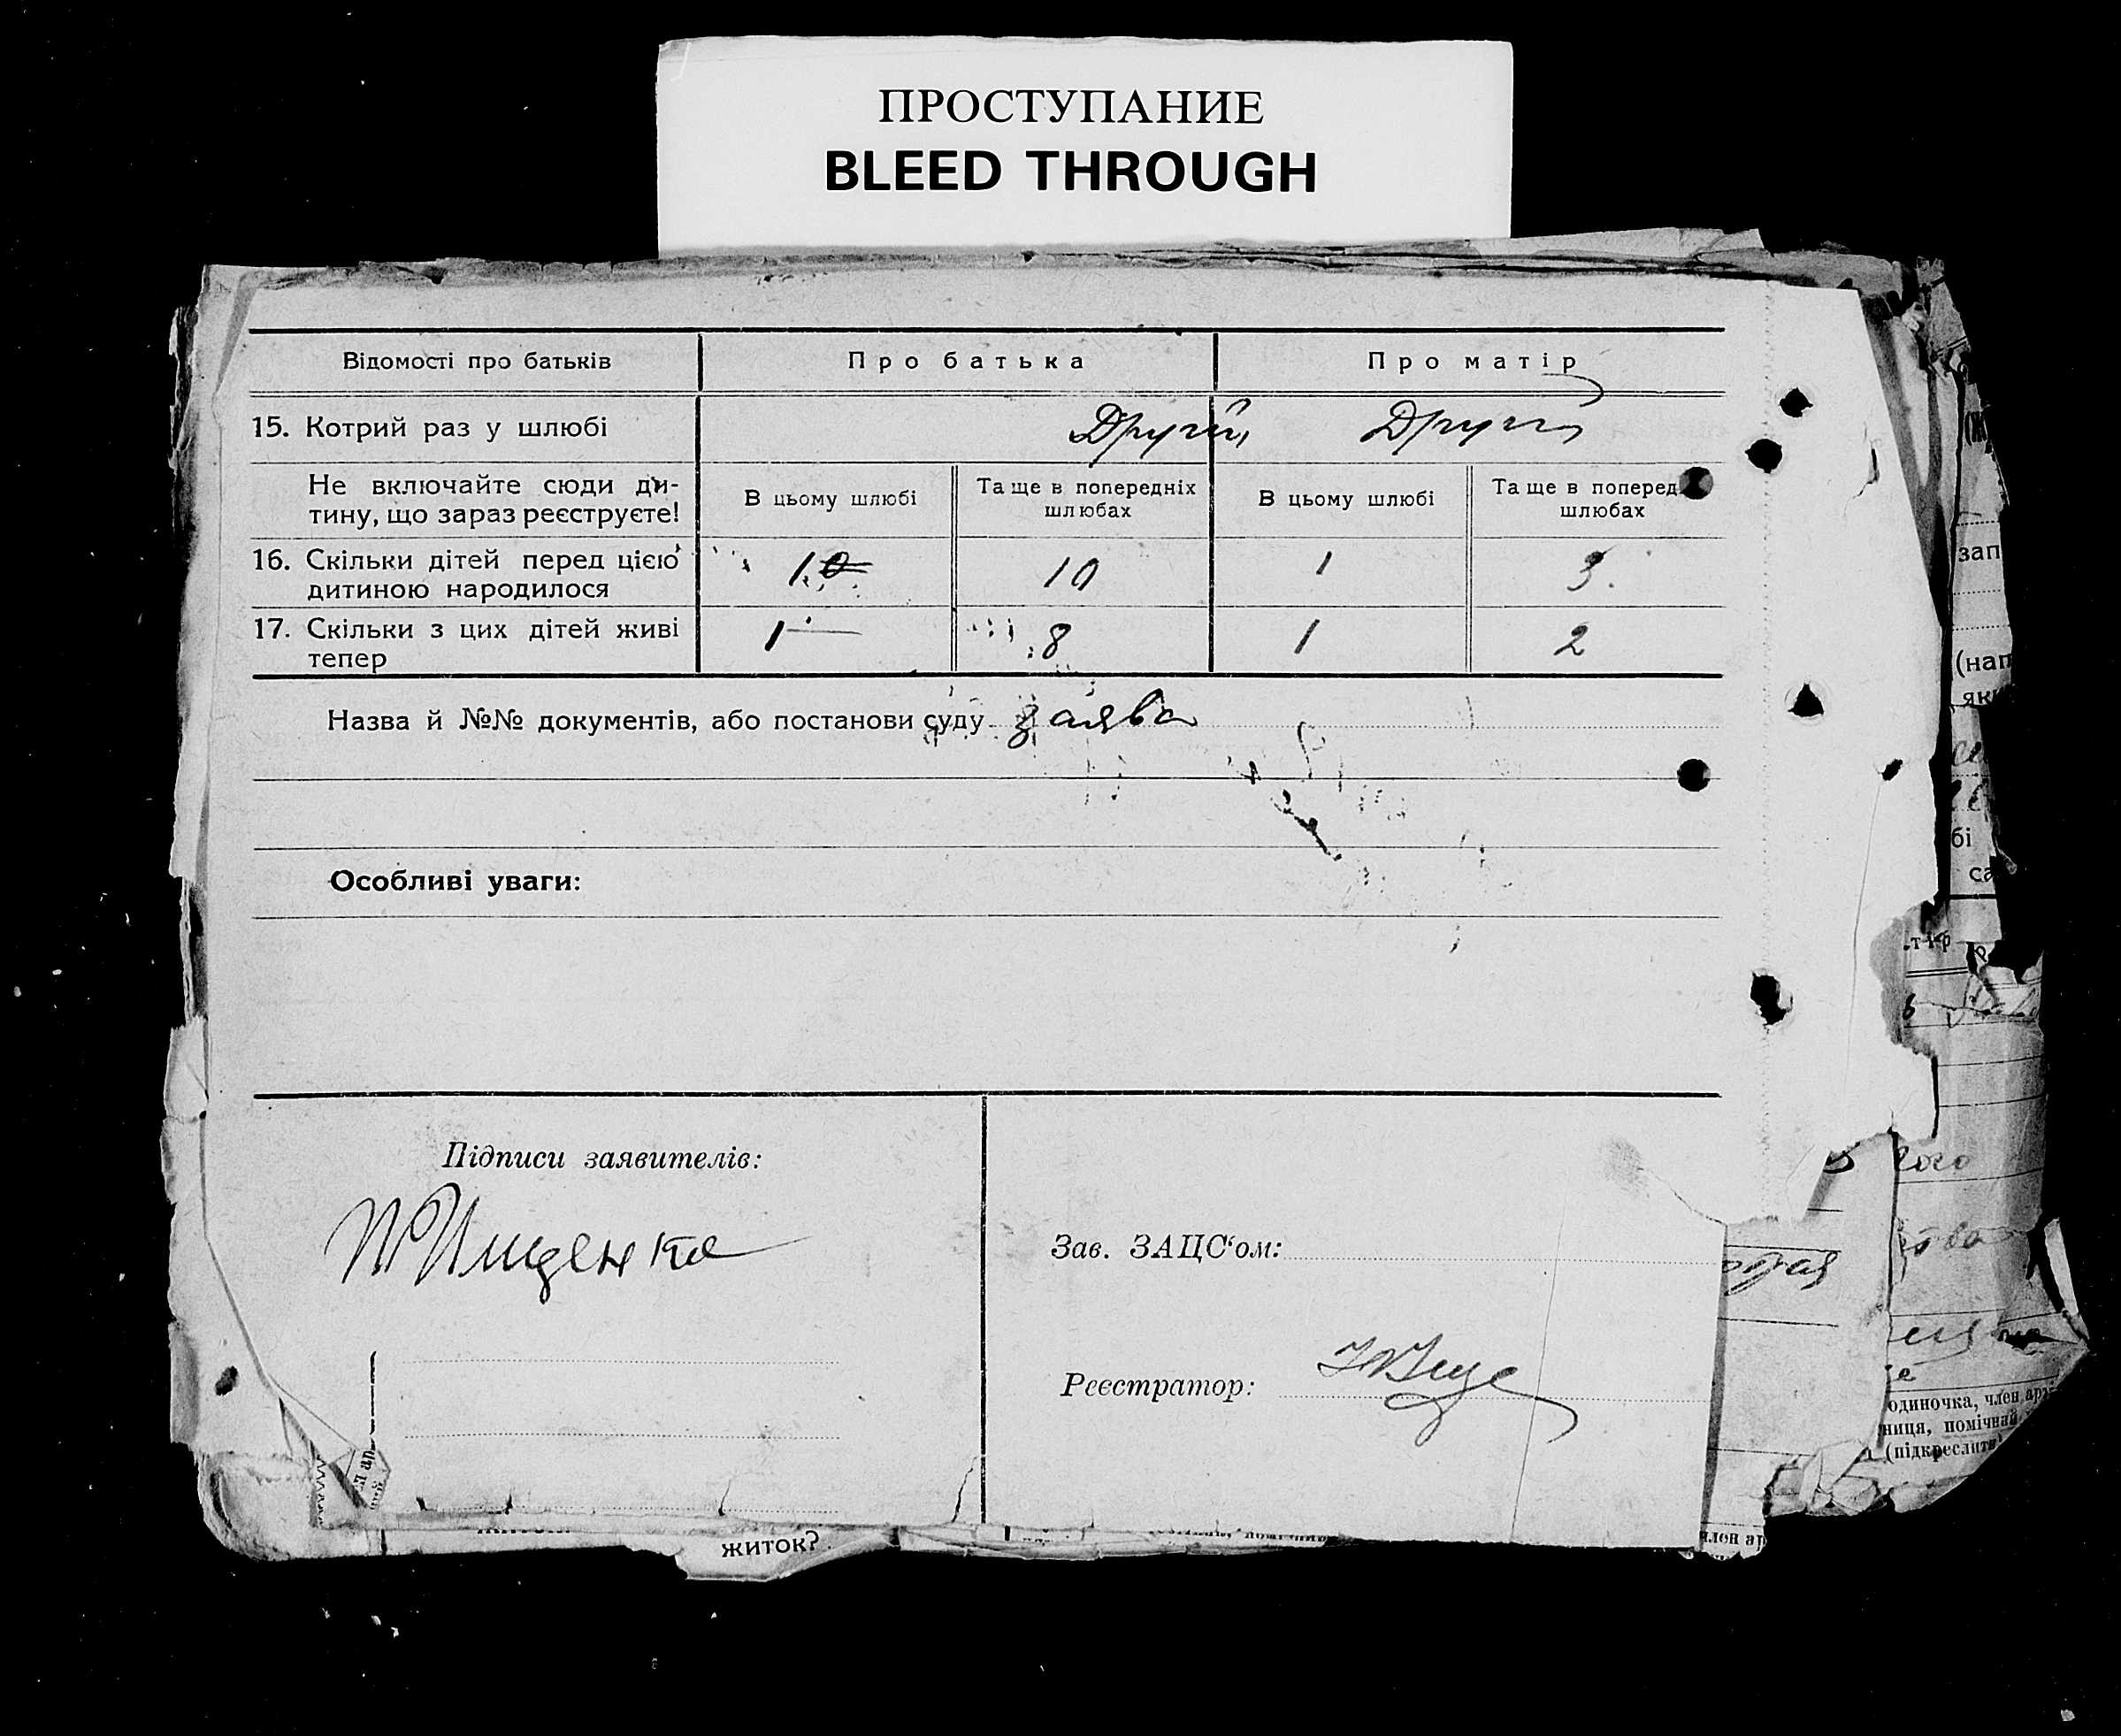 ПРОСТУПАНИЕ
BLEED THROUGH
Відомості про батьків Про батька Про матір
15. Котрий раз у шлюбі Другий Другий
Не включайте сюди ди-
тину, що зараз реєструєте!
В цьому шлюбі
Та ще в попередніх
шлюбах
В цьому шлюбі
Та ще в поперед
шлюбах
16. Скільки дітей перед цією
дитиною народилося
1 0 10 1 3.
17. Скільки з цих дітей живі
тепер
1 — 8 1 2
Назва й №№ документів, або постанови суду заява
Особливі уваги:
Підписи заявителів:
Ищенко
Зав. ЗАЦС‘ом:
Реєстратор:
зап
(нап
як
бі
са
одиночка, член арт
ниця, помічний
(підкреслити)
житок?
член ар